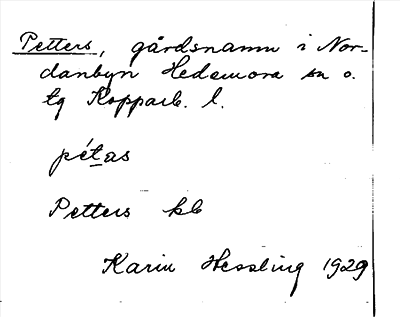 Petters, gårdsnamn i Nor-
danbyn Hedemora sn o.
tg Kopparb. l.
pétas
Petters kb
Karin Hessling 1929